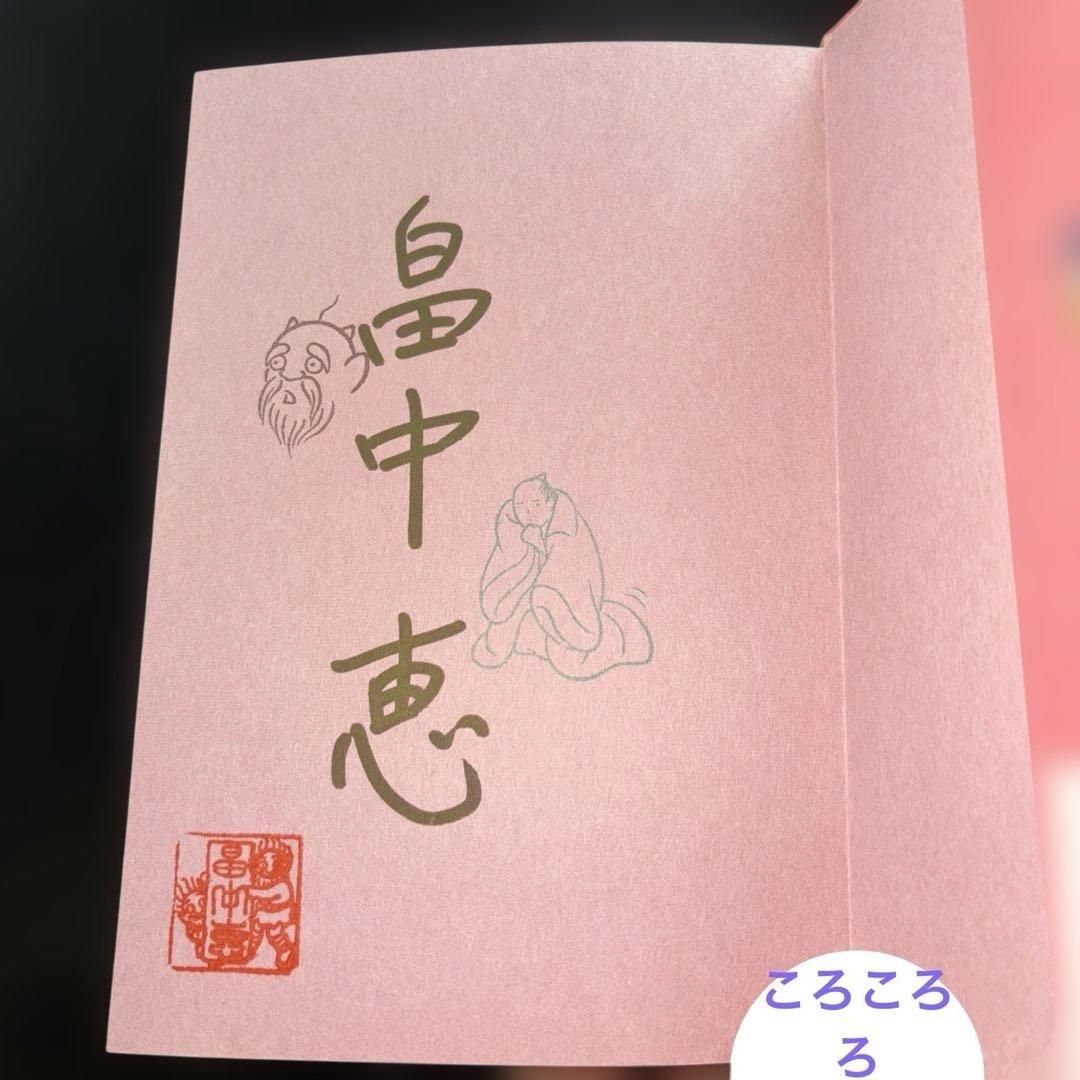 畠中恵
畠中恵
ころころ
ろ